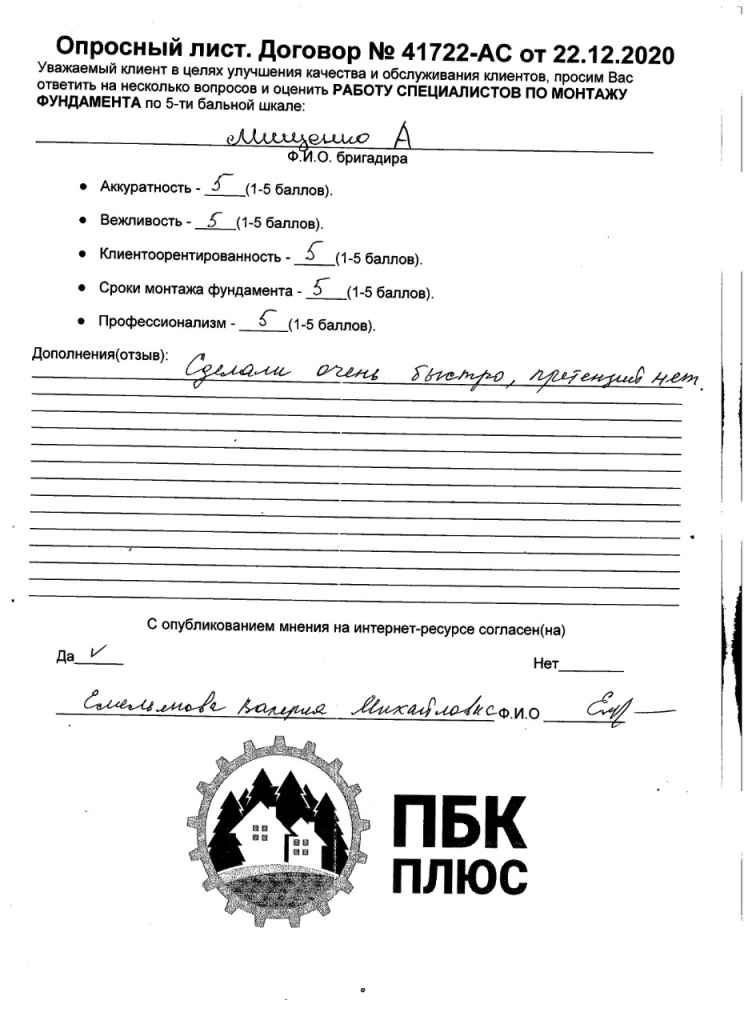 Опросный лист. Договор № 41722-АС от 22.12.2020
Уважаемый клиент в целях улучшения качества и обслуживания клиентов, просим Вас
ответить на несколько вопросов и оценить РАБОТУ СПЕЦИАЛИСТОВ ПО МОНТАЖУ
ФУНДАМЕНТА по 5-ти бальной шкале:
Мищенко А
Ф.И.О. бригадира
• Аккуратность - 5 (1-5 баллов).
• Вежливость - 5 (1-5 баллов).
• Клиентоорентированность - 5 (1-5 баллов).
• Сроки монтажа фундамента - 5 (1-5 баллов).
• Профессионализм - 5 (1-5 баллов).
Дополнения(отзыв): Сделали очень быстро, претензий нет.
С опубликованием мнения на интернет-ресурсе согласен(на)
Да ✓ Нет
Валерия Ф.И.О
ПБК
ПЛЮС